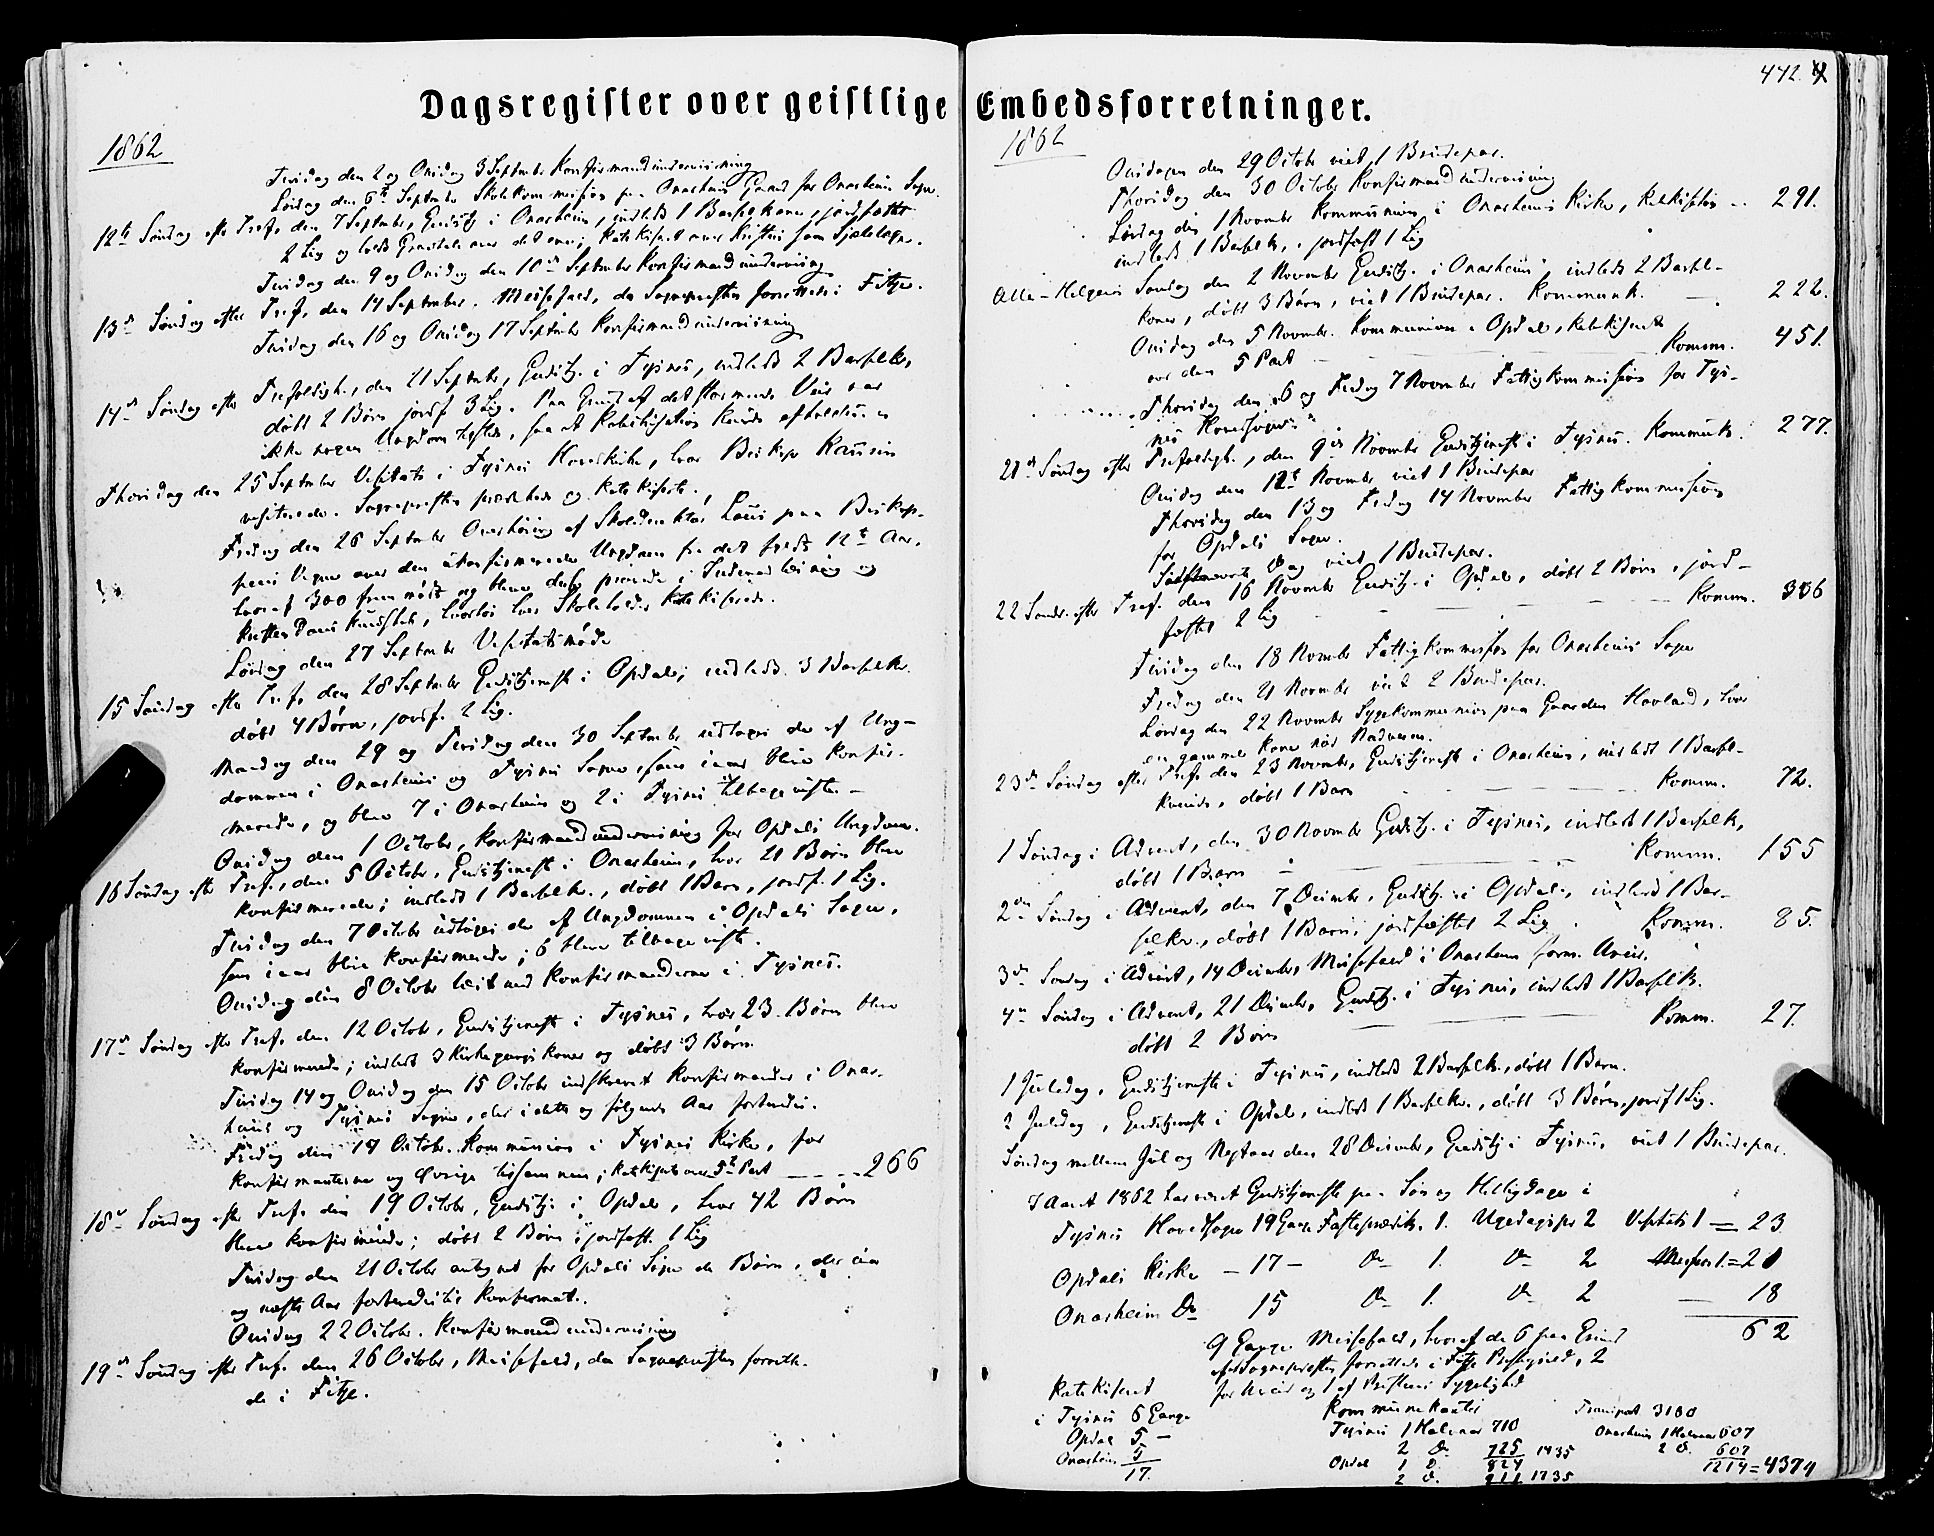 442. 4
Dagsregister over geistlige Embedsforretninger.
1862
Tirsdag den 2 og Onsdag 3 September Konfirmandundervisning
Løvdag den 6te September Skolekommission paa Onarheims Gaard for Onarheims Sogn.
12te Søndag efter Tref. den 7 September, Gudstj. i Onarheim, indledt 1 Barselkone, jordfæstet
2 Lig og holdt Gravtale over det ene; katekiseret over Kristus som
Tirsdag den 9 og Onsdag den 10de September Konfirmandundervisning
13de Søndag efter Tref. den 14 September. Messefald, da Sognepresten forrettede i Fitje.
Tirsdag den 16 og Onsdag 17 September Konfirmandundervisning
14de Søndag efter Trefoldigh., den 21 September, Gudstj. i Tysnes, indledt 2 Barselkr,
døbt 2 Børn jordf 3 Lig. Paa Grund af det stormende Veir var
ikke nogen Ungdom tilstede, saa at Katekisation kunde afholdes
Thorsdag den 25 September Visitats i Tysnes Hovedkirke, hvor Biskop
visiterede. Sognepresten prædikede og katekiserte.
Fredag den 26 September Overhøring af Skoledirektør paa Biskop-
pens Vegne over den ukonfirmerede Ungdom fra det fyldte 12te Aar,
hvoraf 300 frem mødt og bleve disse prøvede i og
Kristendoms Kundskab, hver Skoleholder katekiserede.
Løvdag den 27 September Visitatsmøde
15 Søndag efter Tref. den 28 September Gudstjeneste i Opdal; indledt 3 Barselkr.
døbt 4 Børn, jordf. 2 Lig.
Mandag den 29 og Tirsdag den 30 September udtoges de af Ung-
dommen i Onarheims og Tysnes Sogne, som iaar blive konfir-
merede, og blev 7 i Onarheim og 2 i Tysnes tilbageviste. -
Onsdag den 1 October, Konfirmandundervisning for Opdals Ungdom.
16 Søndag efter Tref., den 5 October, Gudstjeneste i Onarheim, hvor 21 Børn bleve
konfirmerede; indledt 1 Barselkr., døbt 1 Barn, jordf. 1 Lig.
Tirsdag den 7 October udtoges de af Ungdommen i Opdals Sogn,
som iaar blive konfirmerede; 6 bleve tilbageviste.
Onsdag den 8 October læst med Konfirmanderne i Tysnes.
17de Søndag efter Tref. den 12 Octob., Gudstjeneste i Tysnes, hvor 23 Børn bleve
konfirmerede; indledt 3 Kirkegangskoner og døbt 3 Børn.
Tirsdag 14 og Onsdag den 15 October indskrevet Konfirmander i Onar-
heims og Tysnes Sogne, der i dette og følgende Aar
Fredag den 17 Octobr. Kommunion i Tysnes Kirke, for
Konfirmanterne og Øvrige tilsammen; katekiseret over 5te Part — — 266
18de Søndag efter Tref. den 19 Octobr, Gudstj. i Opdal, hvor 42 Børn
bleve konfirmerede; døbt 2 Børn; jordfæst. 1 Lig
Tirsdag den 21 Octobr antegnet for Opdals Sogn de Børn, der iaar
og næste Aar
Onsdag 22 Octobr. Konfirmandundervisning
19de Søndag efter Tref. den 26 October, Messefald, da Sognepresten forrette-
de i Fitje.
1862
Onsdagen den 29 Octobr viet 1 Brudepar.
Thorsdag den 30 October Konfirmandundervisning
Løvdag den 1 Novembr Kommunion i Onarheims Kirke, Katekisation — 291.
indledt 1 Barselk., jordfæst 1 Lig
Alle-Helgens Søndag den 2 November Gudstj. i Onarheim, indledt 2 Barsel-
koner, døbt 3 Børn, viet 1 Brudepar. Kommunik. — 222.
Onsdag den 5 Novembr. Kommunion i Opdal, katekiseret
over den 5 Part — Komm. 451.
Thorsdag den 6 og Fredag 7 November Fattigkommission for Tys-
nes Hovedsogn.
21de Søndag efter Trefoldigh., den 9de Novembr Gudstjeneste i Tysnes. Kommunik. 277.
Onsdag den 12te Novembr viet 1 Brudepar
Thorsdag den 13 og Fredag 14 November Fattigkommission
for Opdals Sogn.
Dag viet 1 Brudepar.
22 Søndr. efter Tref. den 16 Novembr Gudstj. i Opdal, døbt 2 Børn, jord-
fæstet 2 Lig — Komm. 306
Tirsdag den 18 Novembr Fattigkommission for Onarheims Sogn
Fredag den 21 Novembr viet 2 Brudepar.
Løvdag den 22 Novembr Sygekommunion paa Gaarden Hovland, hvor
en gammel Kone nød Nadveren.
23de Søndag efter Tref. den 23 Novembr, Gudstjeneste i Onarheim, indledt 1 Barsel-
kvinde, døbt 1 Barn — Komm. 72.
1 Søndag i Advent, den 30 Novembr Gudstj. i Tysnes, indledt 1 Barselk,
døbt 1 Barn — Komm. 155
2den Søndag i Advent, den 7 Decimbr, Gudstj. i Opdal, indledt 1 Bar-
selkr., døbt 1 Barn; jordfæstet 2 Lig. Komm. 85.
3de Søndag i Advent, 14 Decimbr, Messefald i Onarheim form.
4de Søndag i Advent, 21 Decimbr, Gudstj. i Tysnes, indledt 1 Barselk.
døbt 2 Børn — Komm. 27.
1 Juledag, Gudstjeneste i Tysnes, indledt 2 Barselk., døbt 1 Barn.
2 Juledag, Gudstjeneste i Opdal, indledt 1 Barselkr., døbt 3 Børn, jordf 1 Lig.
Søndag mellem Jul og Nytaar den 28 Decimbr, Gudstj i Tysnes, viet 1 Brudepar.
I Aaret 1862 har været Gudstjeneste paa Søn og Helligdage i
Tysnes Hovedsogn 19 Gange Fasteprædik. 1. Ugedagspr 2 Visitats 1 = 23
Opdals Kirke — 17 — Do 1. Do 2 = 20
Onarheim Do 15 Do 1. Do 2 — 18
62
9 Gange Messefald, hvoraf de 6 paa Grund
af Sognepresten forrettede i Fitje Prestegjeld, 2
for Uveir og 1 af Prestens Sygelighed
Katekiseret
i Tysnes 6 Gange
Opdal 5 —
Onarheim 5
17.
Kommunikanter
Tysnes 1 Halvaar 710
2 Do 725 1435
Opdal 1 D. 824
2 D. 911 1735
Transport 3180
Onarheim 1 Halvaar 607
2 D. 607
1214 = 4374